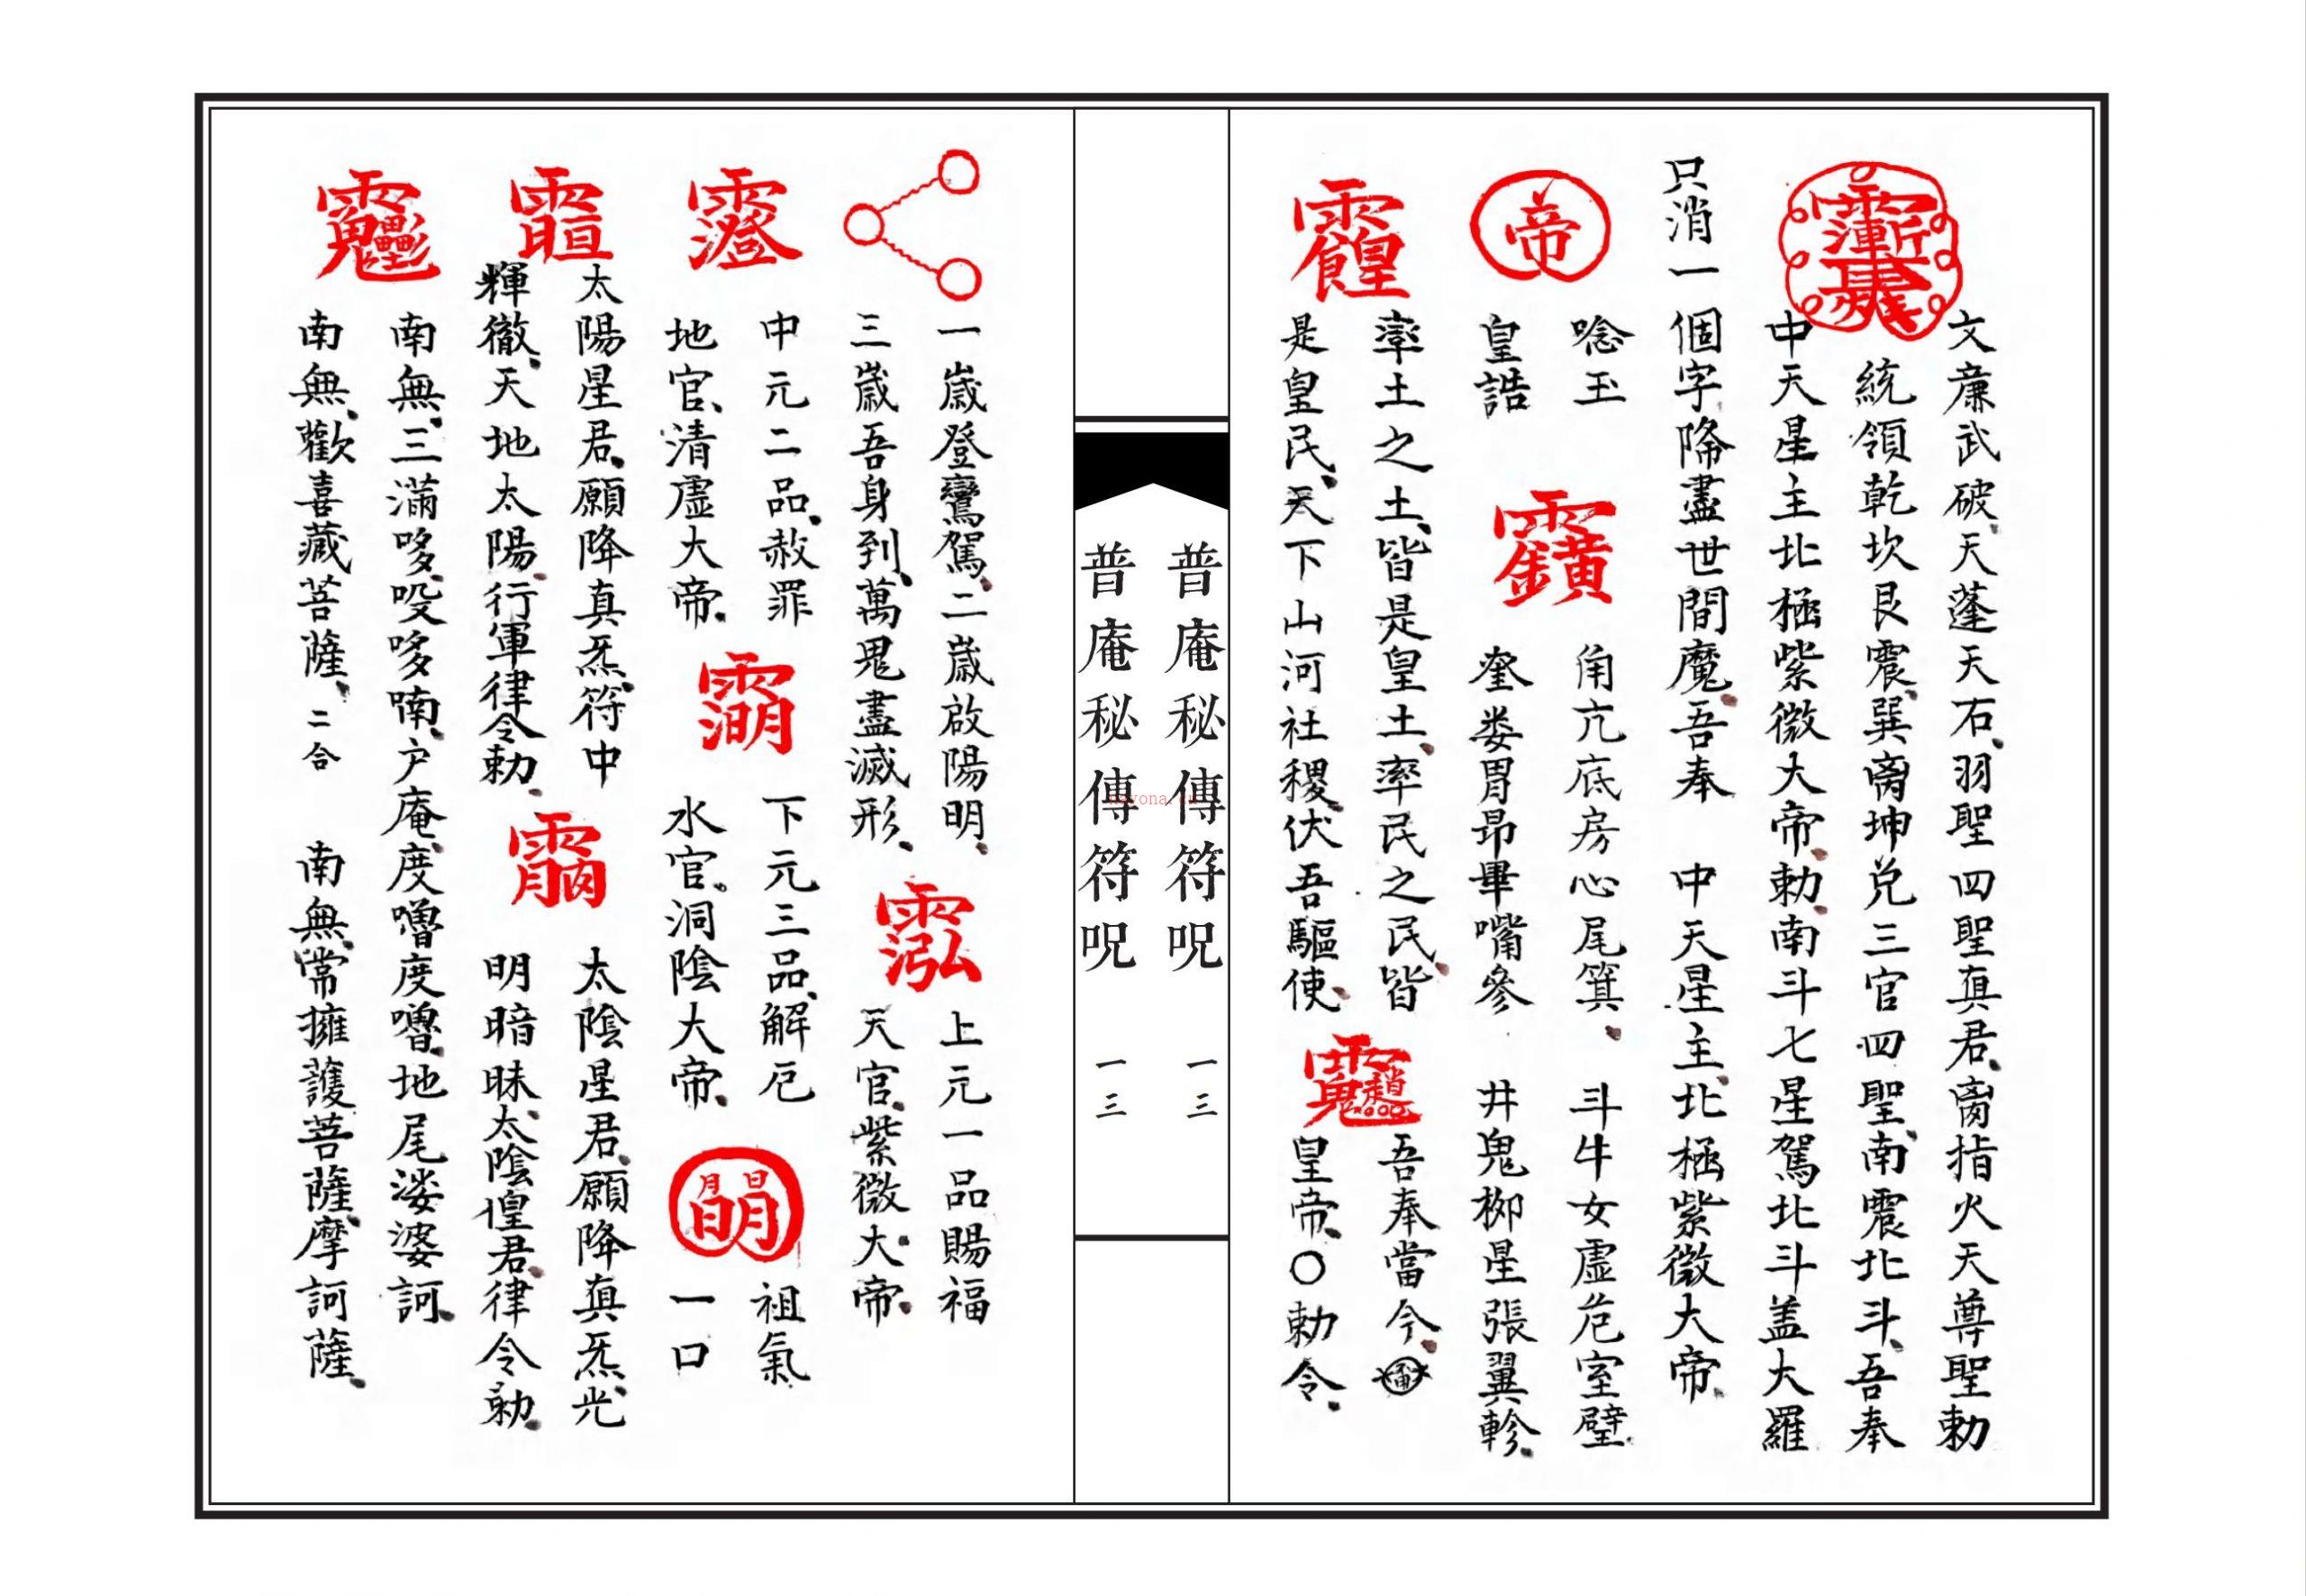 文廉武破天蓬天石羽聖四聖真君离指火天尊聖勅
統領乾坎艮震巽离坤兑三官四聖南震北斗吾奉
中天星主北極紫微大帝勅南斗七星駕北斗盖大羅
只消一個字降盡世間魔吾奉 中天星主北極紫微大帝
帝
唸玉
皇誥
角亢底房心尾箕 斗牛女虛危室壁
奎娄胃昴畢嘴參 井鬼柳星張翼軫
率土之土皆是皇土率民之民皆
是皇民天下山河社稷伏吾驅使
吾奉當今
皇帝〇勅令
普庵秘傳符呪 一三
普庵秘傳符呪 一三
一歲登鸞駕二歲啟陽明
三歲吾身到萬鬼盡滅形
上元一品賜福
天官紫微大帝
中元二品赦罪
地官清虛大帝
下元三品解厄
水官洞陰大帝
祖氣
一口
太陽星君願降真炁符中
輝徹天地太陽行軍律令勅
太陰星君願降真炁光
明暗昧太陰皇君律令勅
南無三滿哆哎哆喃户庵度嚕度嚕地尾婆婆訶
南無歡喜藏菩薩二合 南無常擁護菩薩摩訶薩